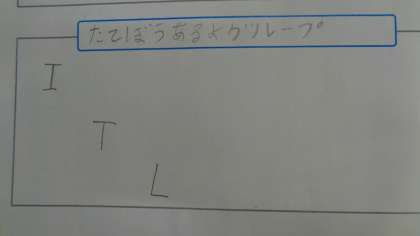 たてぼうあるよグループ
I
T
L